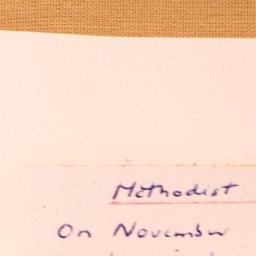 Methodist
On November